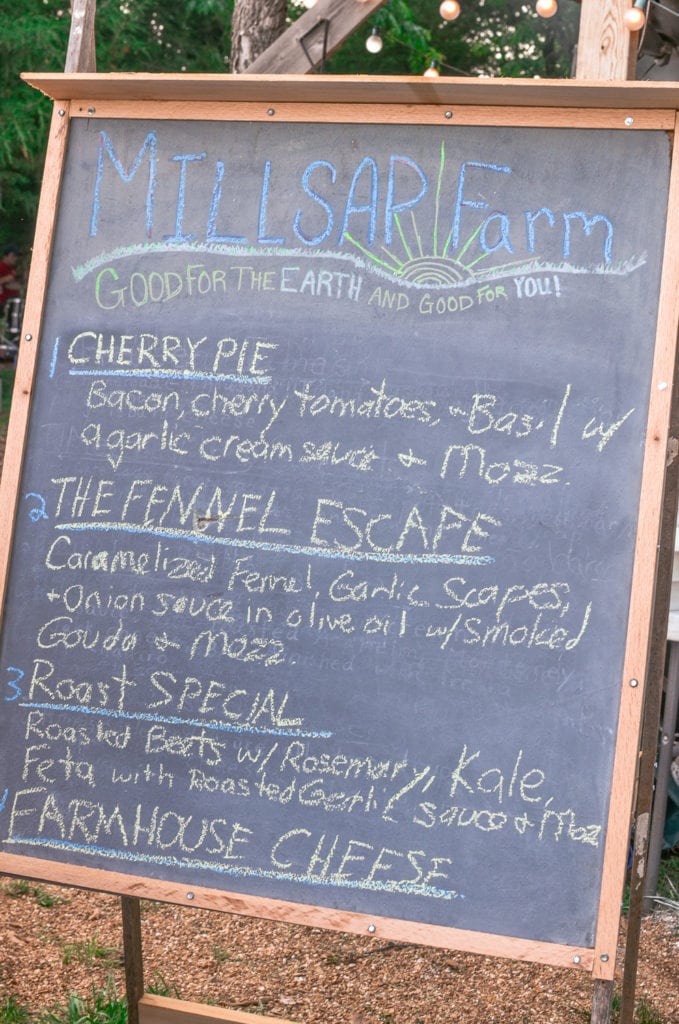 MILLSAP Farm
GOOD FOR THE EARTH AND GOOD FOR YOU!
1 CHERRY PIE
Bacon, cherry tomatoes, + Basil w/
a garlic cream sauce + Mozz.
2 THE FENNEL ESCAPE
Caramelized Fennel, Garlic Scapes,
+ Onion sauce in olive oil w/ Smoked
Gouda + Mozz
3 Roast SPECIAL
Roasted Beets w/ Rosemary, Kale,
Feta with Roasted Garlic sauce + Moz
FARMHOUSE CHEESE